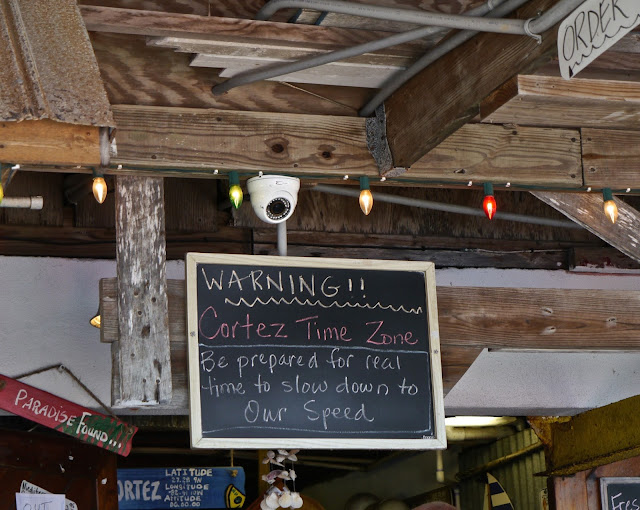 ORDER
WARNING!!
Cortez Time Zone
Be prepared for real
time to slow down to
Our Speed
PARADISE FOUND...
CORTEZ
LATITUDE
LONGITUDE
ALTITUDE
OUT